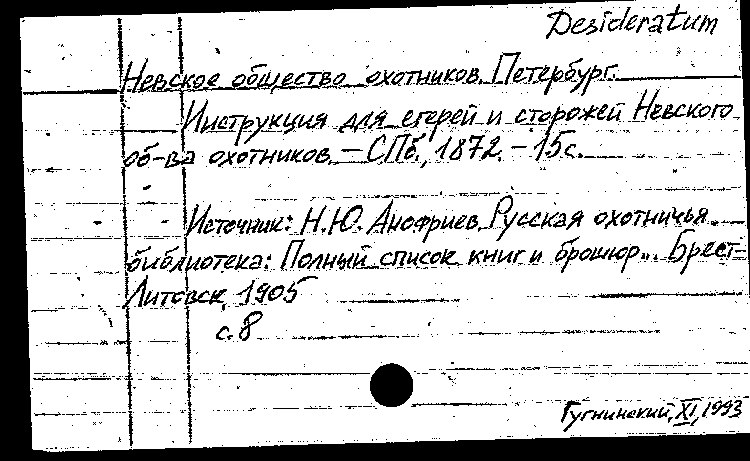 Desideratum
Невское общество охотников. Петербург.
Инструкция для егерей и сторожей Невского
об-ва охотников. — СПб., 1872. — 15с.
Источник: Н.Ю. Анофриев. Русская охотничья
библиотека: Полный список книг и брошюр... Брест-
Литовск, 1905
с. 8
Гугнинский, XI, 1993